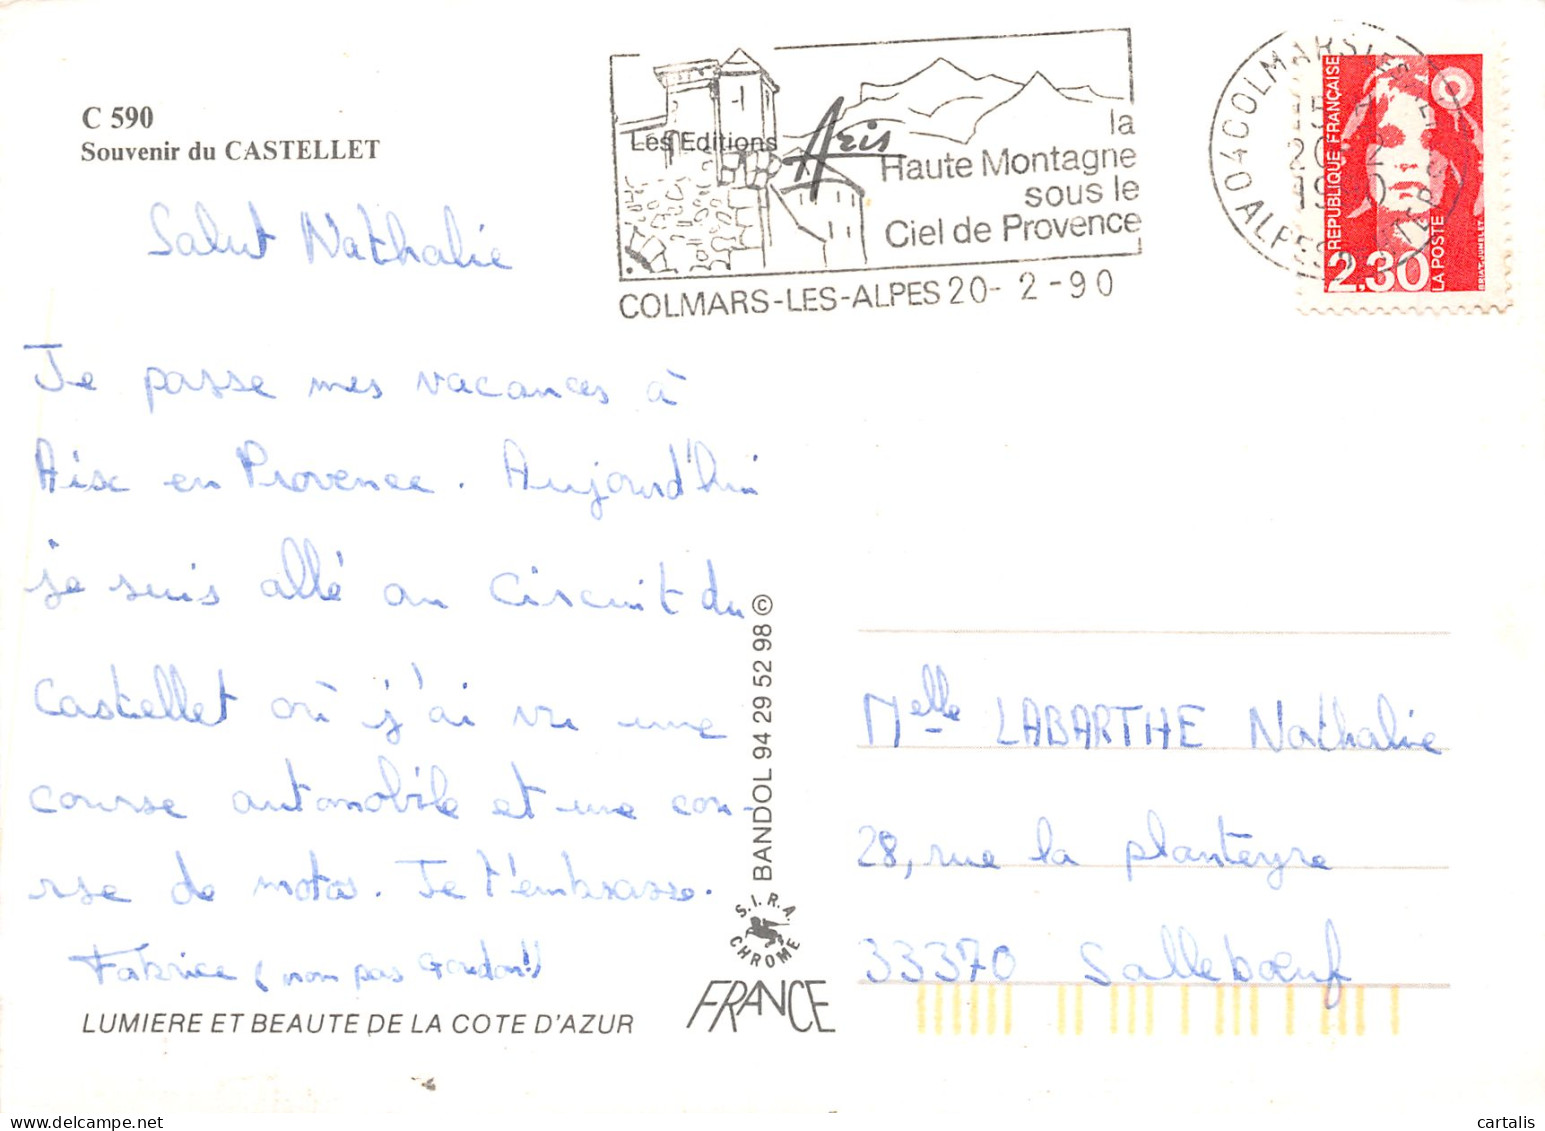 C 590
Souvenir du CASTELLET
Les Editions Aris
la
Haute Montagne
sous le
Ciel de Provence
COLMARS-LES-ALPES 20- 2 -90
04 COLMARS LES ALPES
20 2
1990
REPUBLIQUE FRANÇAISE
2,30
LA POSTE
BRIAT-JUMELET
Salut Nathalie
Je passe mes vacances à
Aix en Provence. Aujourd'hui
je suis allé au circuit du
Castellet où j'ai vu une
course automobile et une cou-
rse de motos. Je t'embrasse.
Fabrice (non pas
LUMIERE ET BEAUTE DE LA COTE D'AZUR
BANDOL 94 29 52 98 ©
S.I.R.A.
CHROME
FRANCE
Melle LABARTHE Nathalie
28, rue la planteyre
33370 Salleboeuf
cartalis